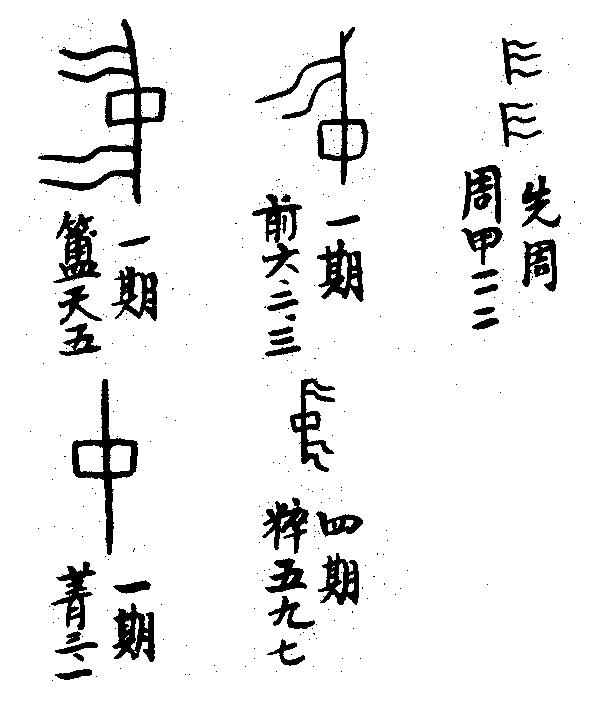 中
一期
簠天五
中
一期
菁三.一
中
一期
前六.二.三
中
四期
粹五九七
先周
周甲二二